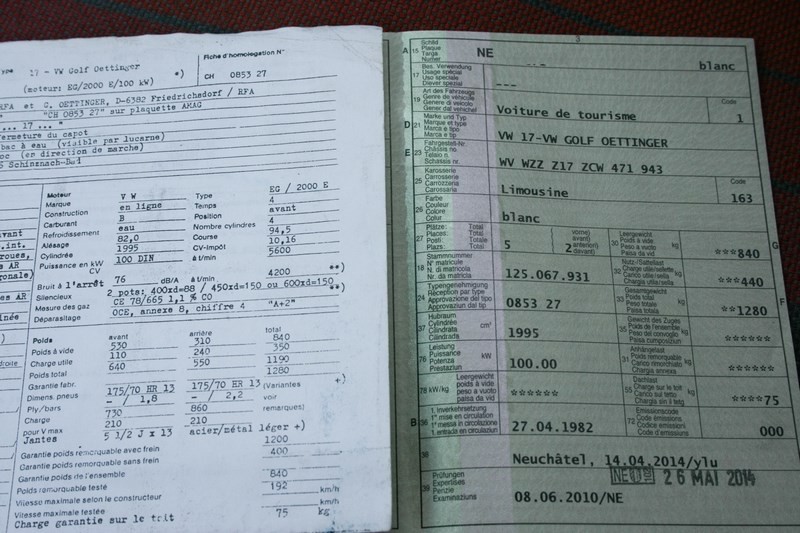 17 - VW Golf Oettinger
(moteur: EG/2000 E/100 kW) *)
Fiche d'homologation N°
CH 0853 27
RFA et G. OETTINGER, D-6382 Friedrichsdorf / RFA
"CH 0853 27" sur plaquette AMAG
... 17 ... "
fermeture du capot
bac à eau (visible par lucarne)
(en direction de marche)
Schinznach-Bad
Moteur
Marque V W Type EG / 2000 E
Construction en ligne Temps 4
Carburant B Position avant
Refroidissement eau Nombre cylindres 4
Alésage 82,0 Course 94,5
Cylindrée 1995 CV-Impôt 10,16
Puissance en kW 100 DIN à t/min 5600
CV
Bruit à l'arrêt 76 dB/A à t/min 4200 **)
Silencieux 2 pots; 400xd=88 / 450xd=150 ou 600xd=150 **)
Mesure des gaz CE 78/665 1,1 % CO
Déparasitage OCE, annexe 8, chiffre 4 "A+2"
Poids avant arrière total
Poids à vide 530 310 840
Charge utile 110 240 350
Poids total 640 550 1190
Garantie fabr. 1280
Dimens. pneus 175/70 HR 13 175/70 HR 13 (Variantes +)
Ply/bars - / 1,8 - / 2,2 voir
Charge 730 860 remarques)
pour V max 210 210
Jantes 5 1/2 J x 13 acier/métal léger +)
Garantie poids remorquable avec frein 1200
Garantie poids remorquable sans frein 400
Garantie poids de l'ensemble
Poids remorquable testé 840
Vitesse maximale selon le constructeur 192 km/h
Vitesse maximale testée km/h
Charge garantie sur le toit 75 kg
3
A 15 Schild
Plaque
Targa
Numer
NE --- blanc
17 Bes. Verwendung
Usage spécial
Uso speciale
Diever spezial
---
19 Art des Fahrzeuges
Genre de véhicule
Genere di veicolo
Gener dal vehichel
Voiture de tourisme
Code
1
D 21 Marke und Typ
Marque et type
Marca e tipo
Marca e tip
VW 17-VW GOLF OETTINGER
E 23 Fahrgestell-Nr.
Châssis no.
Telaio n.
Schassis nr.
WV WZZ Z17 ZCW 471 943
25 Karosserie
Carrosserie
Carrozzeria
Carossaria
Limousine
Code
163
26 Farbe
Couleur
Colore
Colur
blanc
27 Plätze: Total
Places: Total
Posti: Totale
Plazs: Total
5
vorne)
avant)
anteriori)
davant)
2
30 Leergewicht
Poids à vide
Peso a vuoto
Paisa da vid
kg
***840
G
18 Stammnummer
N° matricule
N. di matricola
Nr. da matricla
125.067.931
32 Nutz-/Sattellast
Charge utile/sellette
Carico utile/sella
Chargia utila/sella
kg
***440
24 Typengenehmigung
Réception par type
Approvazione del tipo
Approvaziun dal tip
0853 27
33 Gesamtgewicht
Poids total
Peso totale
Paisa totala
kg
**1280
F
37 Hubraum
Cylindrée
Cilindrata
Cilindrada
cm³
1995
35 Gewicht des Zuges
Poids de l'ensemble
Peso del convoglio
Paisa cumposiziun
kg
******
76 Leistung
Puissance
Potenza
Prestaziun
kW
100.00
31 Anhängelast
Poids remorquable
Carico rimorchiato
Chargia annexa
kg
******
78 kW/kg
Leergewicht
poids à vide
peso a vuoto
paisa da vid
******
55 Dachlast
Charge sur le toit
Carico sul tetto
Chargia sin il tetg
kg
****75
B 36 1. Inverkehrsetzung
1re mise en circulation
1a messa in circolazione
1. entrada en circulaziun
27.04.1982
72 Emissionscode
Code émissions
Codice emissioni
Code d'emissiuns
000
38
Neuchâtel, 14.04.2014/ylu
NE 26 MAI 2014
39 Prüfungen
Expertises
Perizie
Examinaziuns
08.06.2010/NE